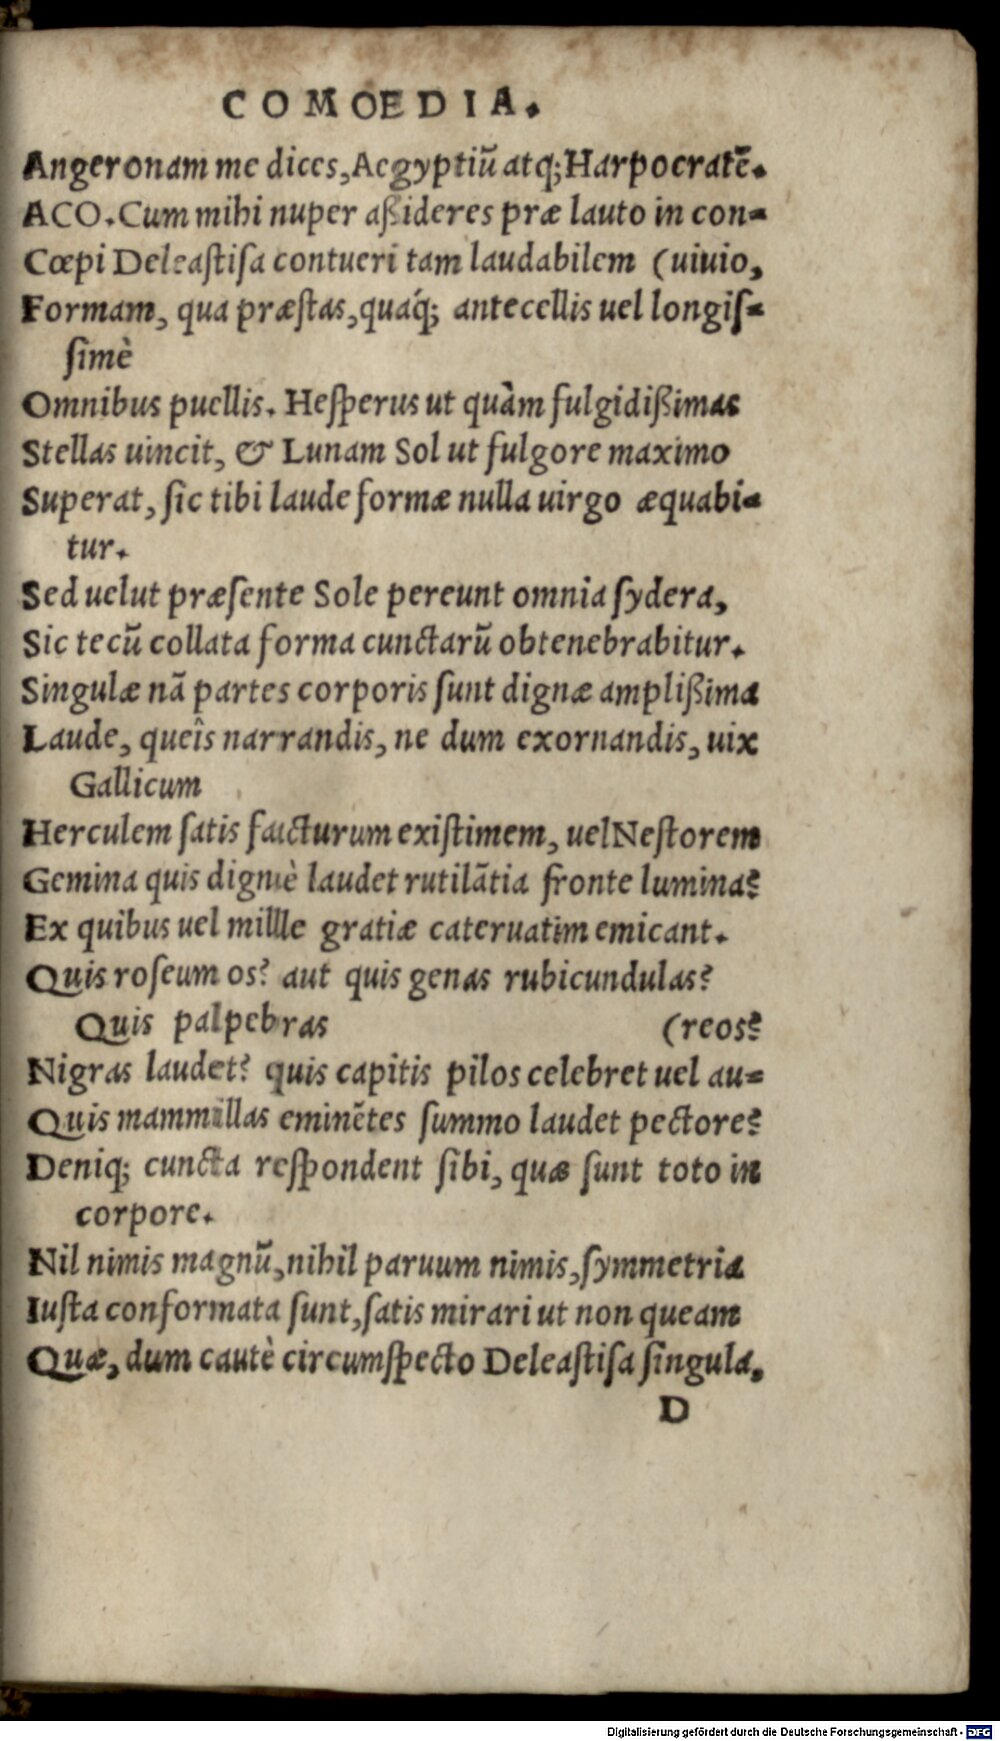 COMOEDIA.
Angeronam me dices, Aegyptiũ atq; Harpocratẽ.
ACO. Cum mihi nuper aßideres præ lauto in con-
Cœpi Deleaſtiſa contueri tam laudabilem (uiuio,
Formam, qua præſtas, quaq́; antecellis uel longiſ-
ſimè
Omnibus puellis. Heſperus ut quàm fulgidißimas
Stellas uincit, & Lunam Sol ut fulgore maximo
Superat, ſic tibi laude formæ nulla uirgo æquabi-
tur.
Sed uelut præſente Sole pereunt omnia ſydera,
Sic tecũ collata forma cunctarũ obtenebrabitur.
Singulæ nã partes corporis ſunt dignæ amplißima
Laude, queîs narrandis, ne dum exornandis, uix
Gallicum
Herculem ſatis facturum exiſtimem, uel Neſtorem
Gemina quis dignè laudet rutilãtia fronte lumina?
Ex quibus uel millle gratiæ cateruatim emicant.
Quis roſeum os? aut quis genas rubicundulas?
Quis palpebras (reos?
Nigras laudet? quis capitis pilos celebret uel au-
Quis mammillas eminẽtes ſummo laudet pectore?
Deniq; cuncta reſpondent ſibi, quæ ſunt toto in
corpore.
Nil nimis magnũ, nihil paruum nimis, ſymmetria
Iuſta conformata ſunt, ſatis mirari ut non queam
Quæ, dum cautè circumſpecto Deleaſtiſa ſingula,
D
Digitalisierung gefördert durch die Deutsche Forschungsgemeinschaft - DFG